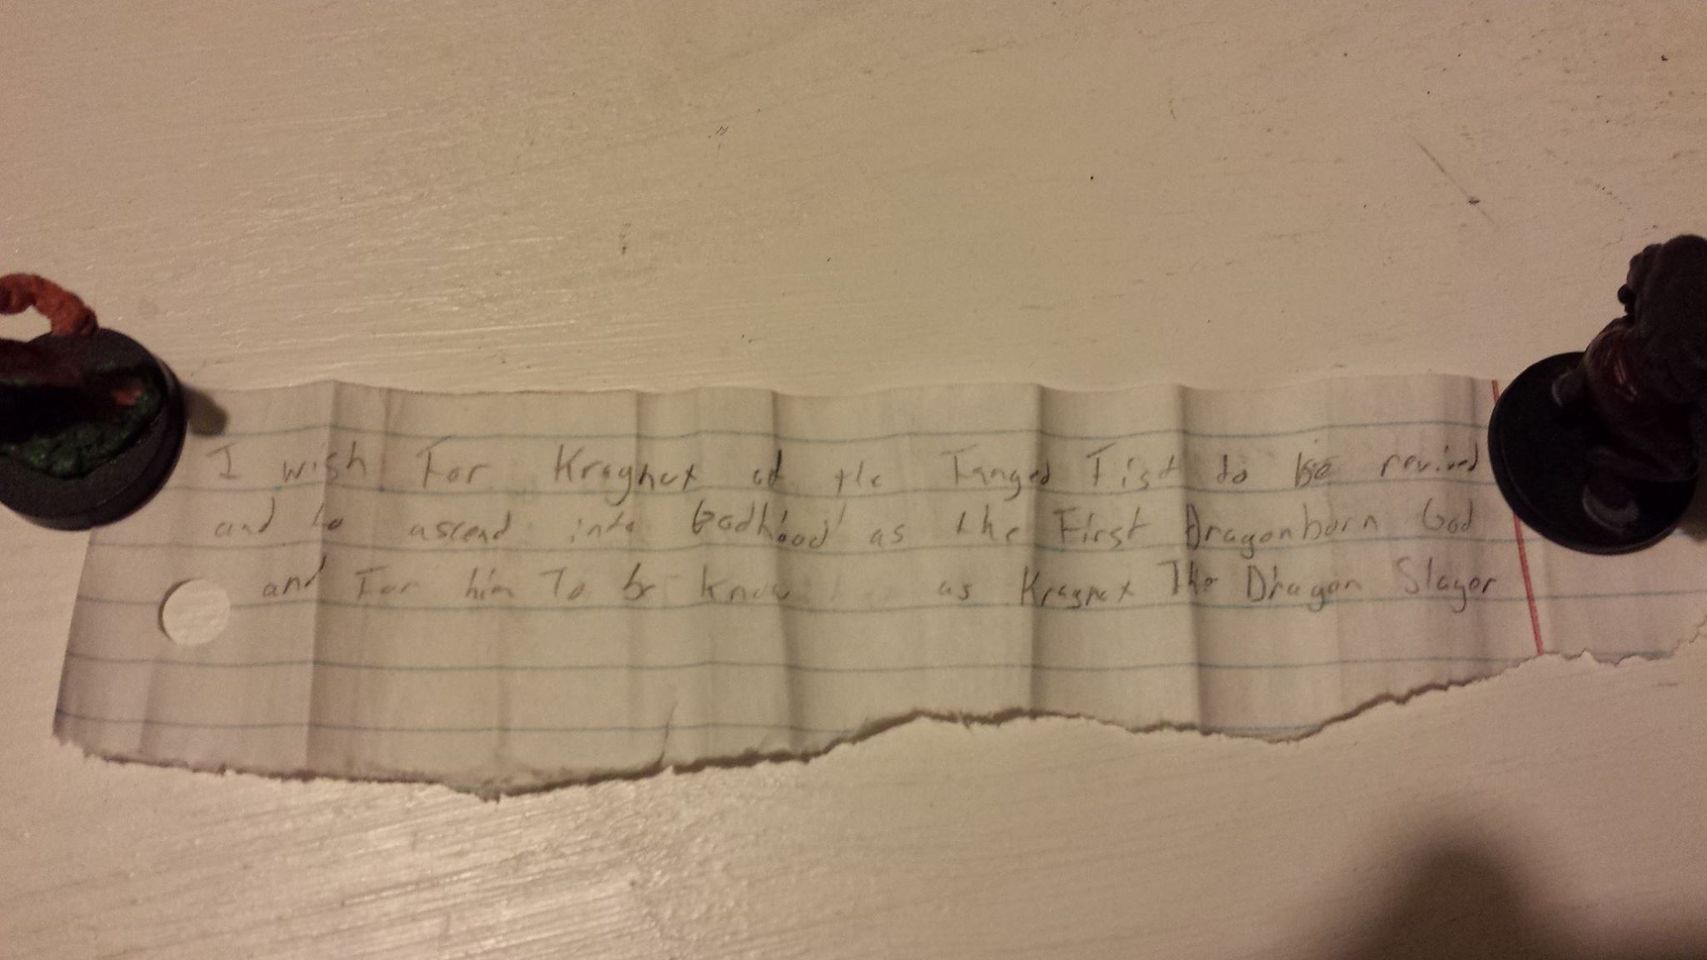 I wish For Kragnex of the Fanged Fist to be revived
and to ascend into Godhood as the First Dragonborn God
and For him To be know as Kragnex The Dragon Slayor